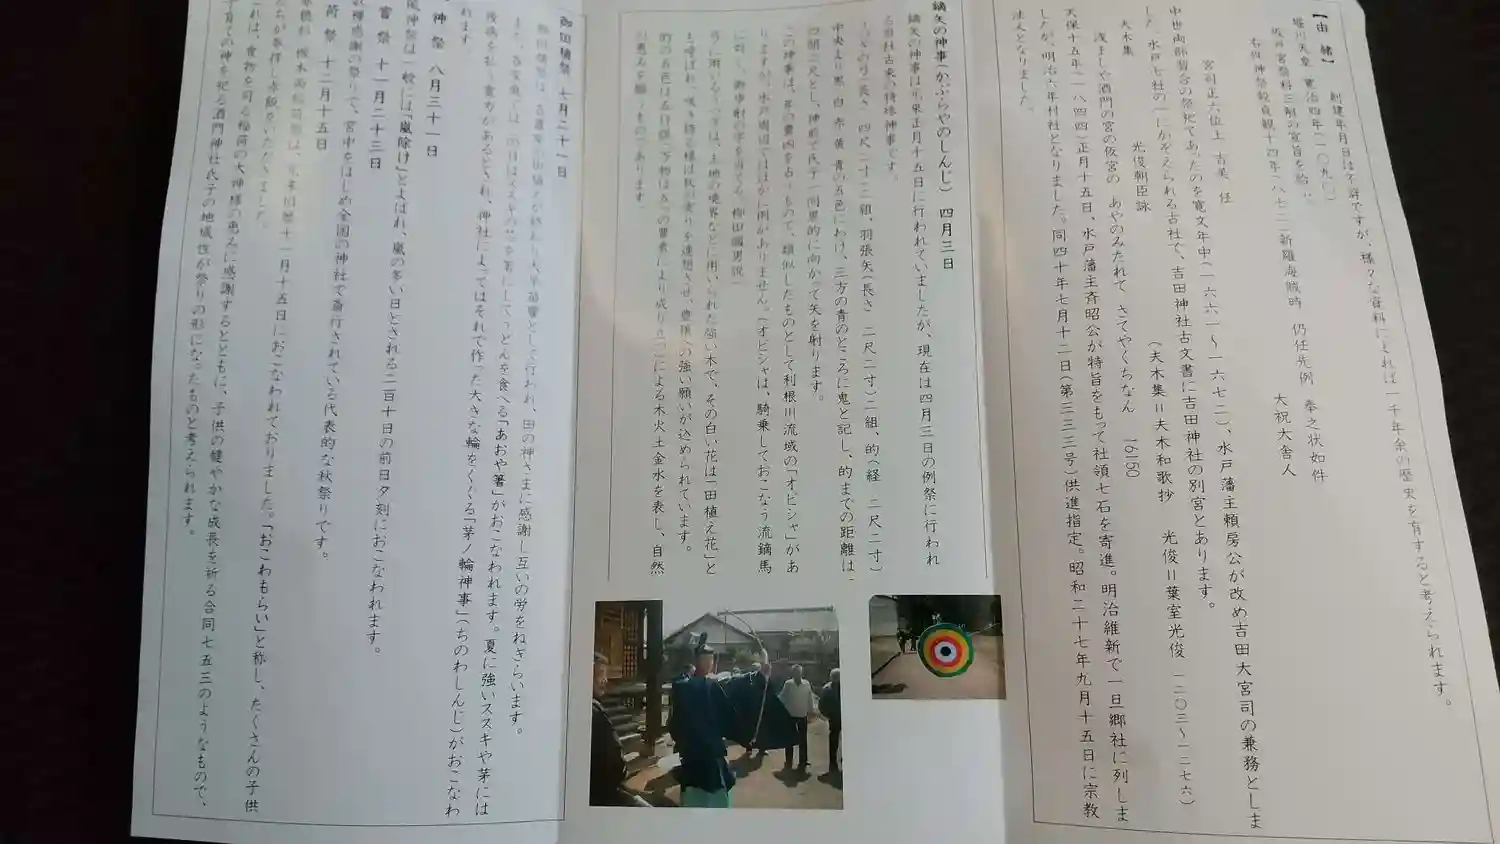 【由緒】
創建年月日は不詳ですが、様々な資料によれば一千年余の歴史を有すると考えられます。
堀川天皇 寛治四年(一〇九〇)
仍任先例 奉之状如件
右的 神祭 貞観十四年(八七二)新羅海賊時 大祝大舎人
宮司正六位上 吉美 任
中世両部習合の祭祀であったのを寛文年中(一六六一〜一六七二)、水戸藩主頼房公が改め吉田大宮司の兼務としま
した。水戸七社の一にかぞえられる古社で、吉田神社古文書に吉田神社の別宮とあります。
夫木集 光俊朝臣詠 (夫木集=夫木和歌抄 光俊=葉室光俊 一二〇三〜一二七六)
浅ましや酒門の宮の仮宮の あやのみたれて さてやくちなん 16150
天保十五年(一八四四)正月十五日、水戸藩主斉昭公が特旨をもって社領七石を寄進。明治維新で一旦郷社に列しま
したが、明治六年村社となりました。同四十年七月十二日(第三三三号)供進指定。昭和二十七年九月十五日に宗教
法人となりました。
鏑矢の神事(かぶらやのしんじ) 四月三日
鏑矢の神事は元来正月十五日に行われていましたが、現在は四月三日の例祭に行われ
る当社古来の特殊神事です。
長さ 四尺二寸二組、羽張矢(長さ 二尺二寸)二組、的(経 二尺二寸)
中央より黒 白 赤 黄 青の五色にわけ、三方の青のところに鬼と記し、的までの距離は
四間二尺とし、神前で氏子一同恵的に向かって矢を射ります。
この神事は、年の豊凶を占うもので、類似したものとして利根川流域の「オビシャ」があ
りますが、水戸周辺ではほかに例がありません。(オビシャは、騎乗しておこなう流鏑馬
に対し、御歩射の字を当てる 柳田國男説)
弓に用いるうつぎは、土地の境界などに用いられた強い木で、その白い花は「田植え花」と
も呼ばれ、咲き誇る様は秋の実りを連想させ、豊穣への強い願いが込められています。
的の五色は五行説(万物は五つの要素により成り立つ)による木火土金水を表し、自然
の恵みを願うものであります。
七月二十一日
として行われ、田の神さまに感謝し互いの労をねぎらいます。
また、各家庭では、この日はススキや茅を箸にしてうどんを食べる「あおや箸」がおこなわれます。夏に強いススキや茅には
疫病を払う霊力があるとされ、神社によってはそれで作った大きな輪をくぐる「茅ノ輪神事」(ちのわしんじ)がおこなわ
れます。
神祭 八月三十一日
風神祭は一般には「嵐除け」とよばれ、嵐の多い日とされる二百十日の前日夕刻におこなわれます。
嘗祭 十一月二十三日
穫感謝の祭りで、宮中をはじめ全国の神社で斎行されている代表的な秋祭りです。
荷祭 十二月十五日
元来旧暦十一月十五日におこなわれておりました。「おこわもらい」と称し、たくさんの子供
たちが参拝し赤飯をいただきました。
これは、食物を司る稲荷の大神様の恵みに感謝するとともに、子供の健やかな成長を祈る合同七五三のようなもので、
子育ての神を祀る酒門神社氏子の地域性が祭りの形になったものと考えられます。